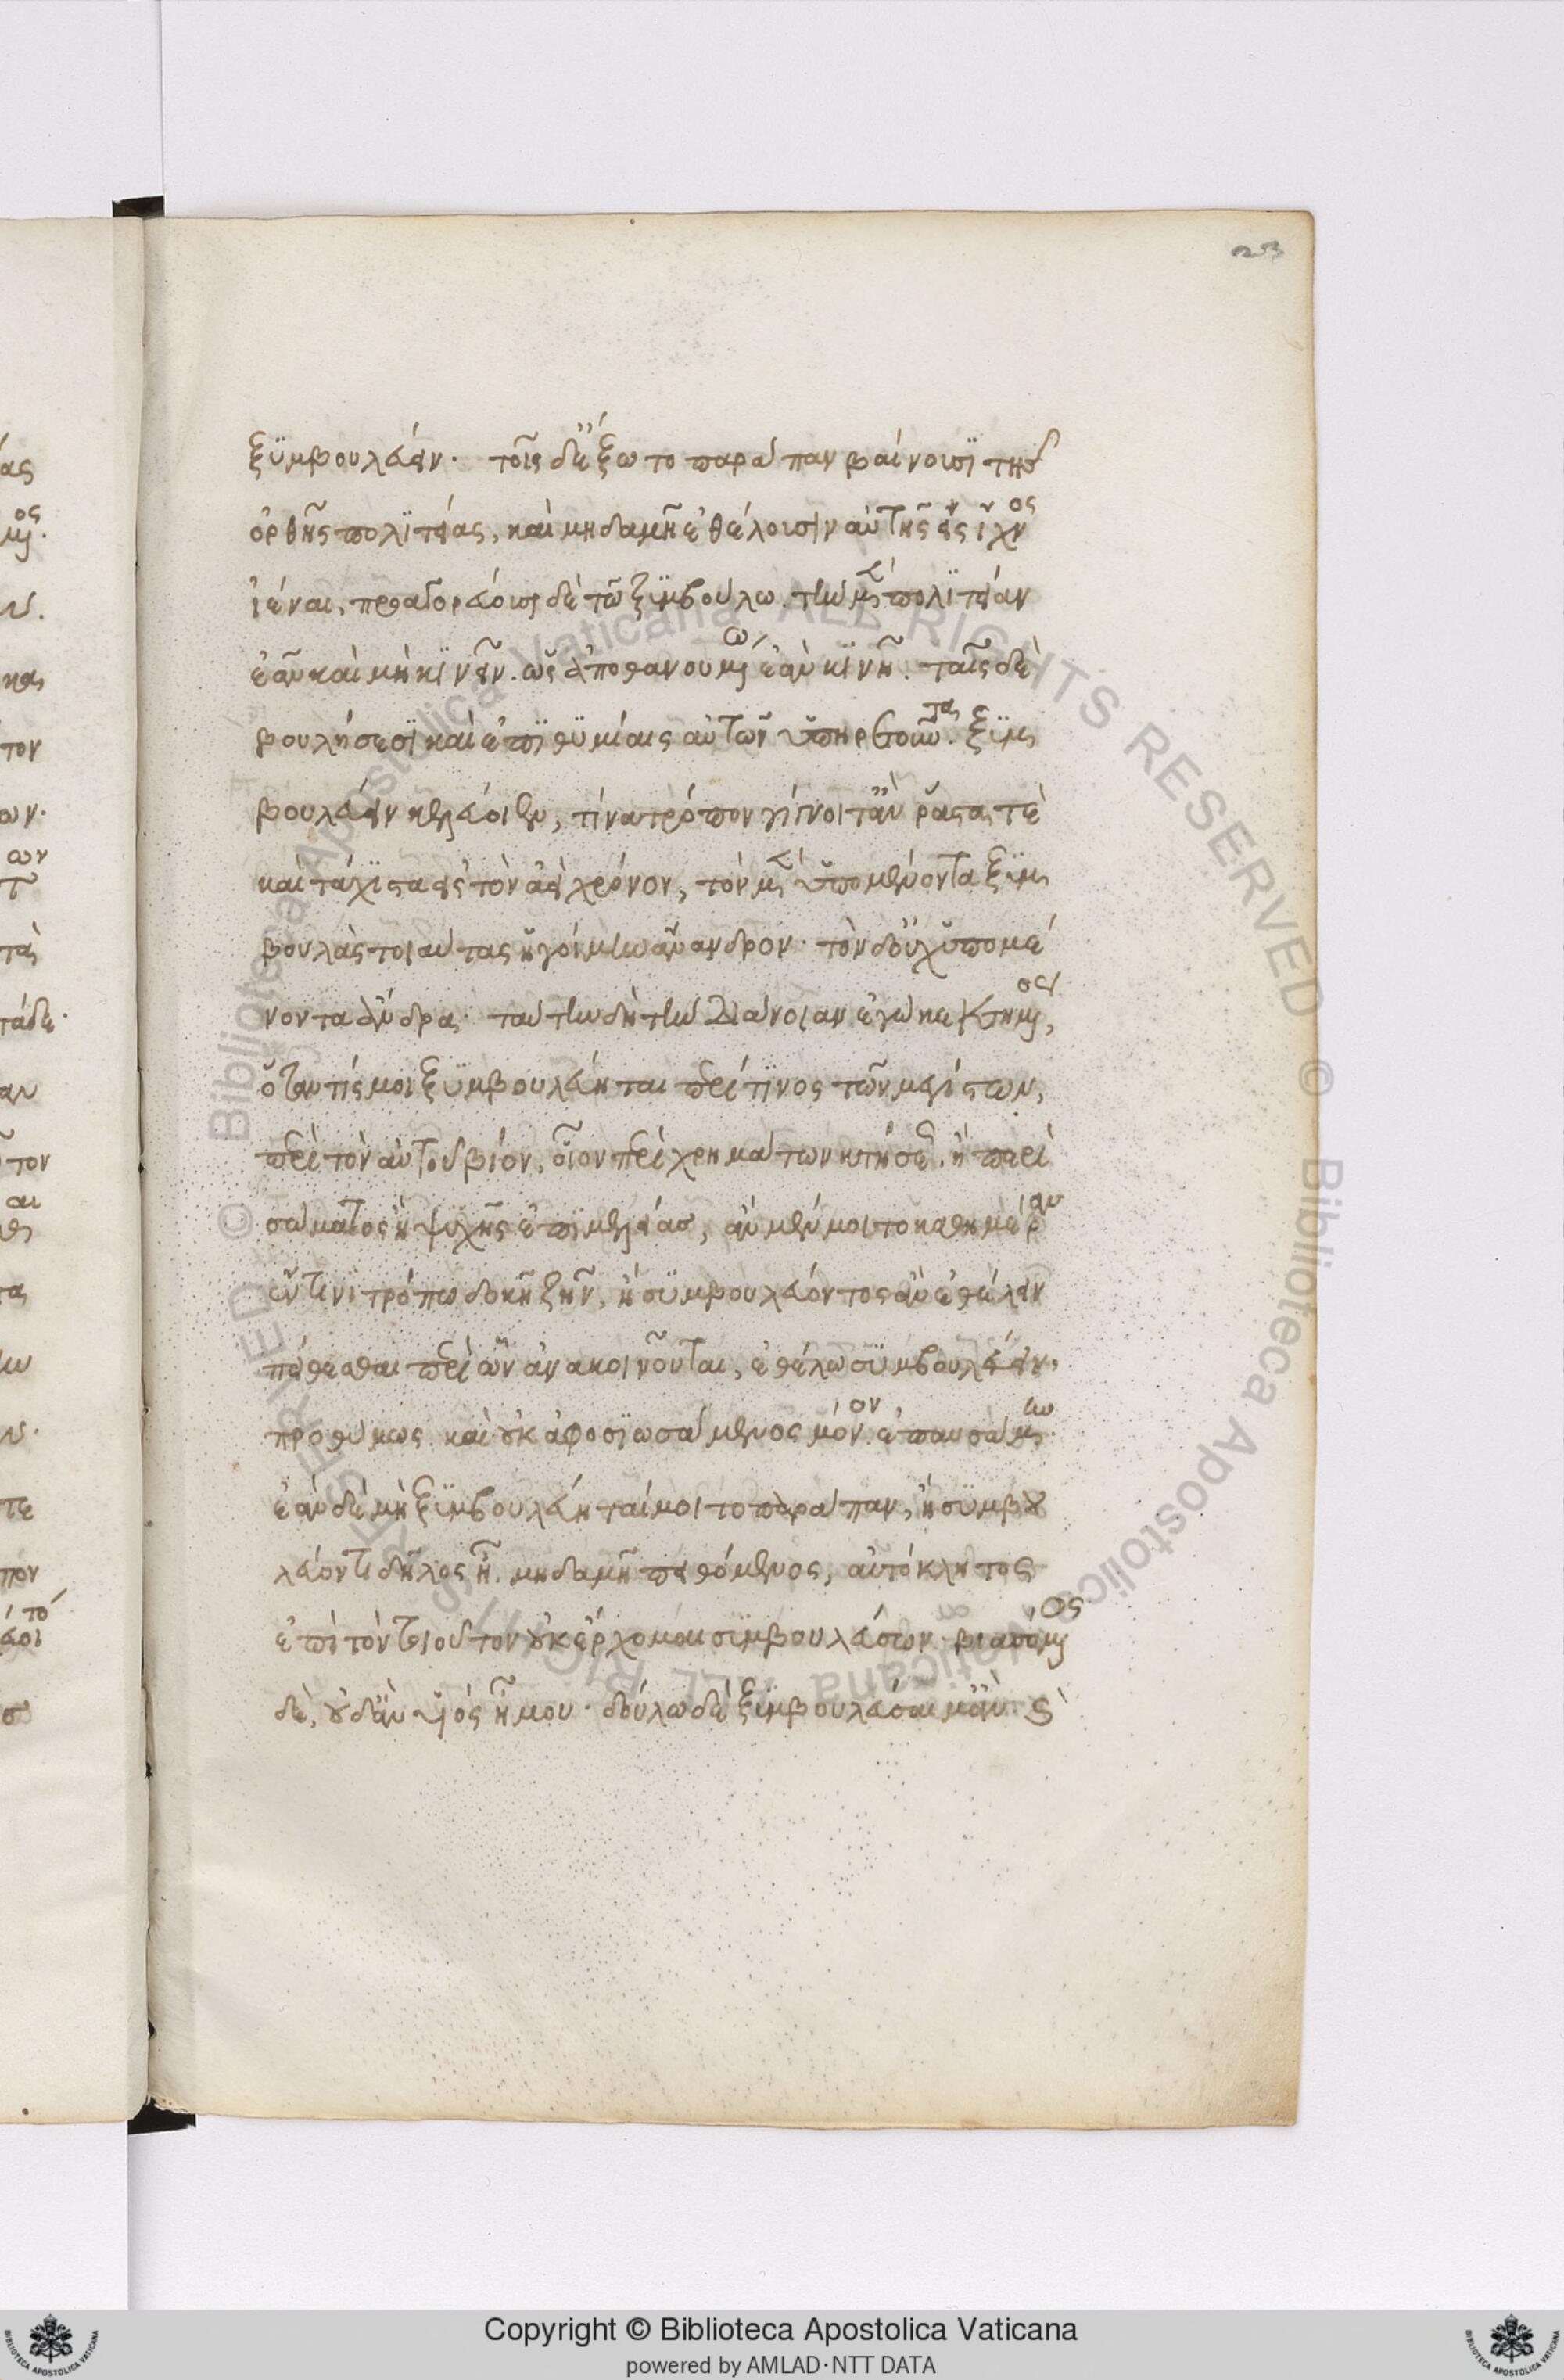 23
ξϋμβουλεύειν. τοῖς δ' ἔξω το παράπαν βαίνουσϊ τῆς
ὀρθῆς πολϊτείας, καὶ μηδαμῆ ἐθέλουσιν αὐτῆς εἰς ἴχνος
ἰέναι, προαγορεύουσι δὲ τῶ ξυμβούλω. τὴν μὲν πολϊτείαν
ἐᾶν καὶ μὴ κϊνεῖν. ὡς ἀποθανουμένω ἐὰν κϊνῆ. ταῖς δὲ
βουλήσεσϊ καὶ ἐπϊθϋμίαις αὐτῶν ὑπηρετοῦντας. ξϋμ
βουλεύειν κελεύοιεν, τίνα τρόπον γίγνοιτ' ἂν ῥᾶστα τὲ
καὶ τάχϊστα εἰς τὸν ἀεὶ χρόνον, τὸν μὲν ὑπομένοντα ξϋμ
βουλὰς τοιαύτας ἡγοίμην ἂν ἄνανδρον. τὸν δ' οὐχ ὑπομέ
νοντα ἄνδρα. ταύτην δὴ τὴν διάνοιαν ἐγὼ κεκτημένος,
ὅταν τίς μοι ξϋμβουλεύηται περί τϊνος τῶν μεγίστων,
περὶ τὸν αὐτοῦ βίον, οἷον περὶ χρημάτων κτήσεως, ἢ περὶ
σώματος ἢ ψυχῆς ἐπϊμελείας, ἂν μέν μοι το καθημέραν
ἔν τινι τρόπω δοκῆ ζῆν, ἢ σϋμβουλεύοντος ἂν ἐθέλειν
πείθεσθαι περὶ ὧν ἀνακοινοῦται, ἐθέλω σϋμβουλεύειν,
προθύμως καὶ οὐκ ἀφοσϊωσάμενος μόνον ἐπαυσάμην.
ἐὰν δὲ μὴ ξϋμβουλεύηταί μοι το παράπαν, ἢ σϋμβου
λεύοντι δῆλος ᾖ. μηδαμῆ πειθόμενος, αὐτόκλητος
ἐπὶ τὸν τοιοῦτον οὐκ ἔρχομαι σϋμβουλεύσων. βιασόμενος
δὲ, οὐδ' ἂν υἱός ᾖ μου. δούλω δὲ ξϋμβουλεύσαιμ' ἂν καὶ
Copyright © Biblioteca Apostolica Vaticana
powered by AMLAD·NTT DATA